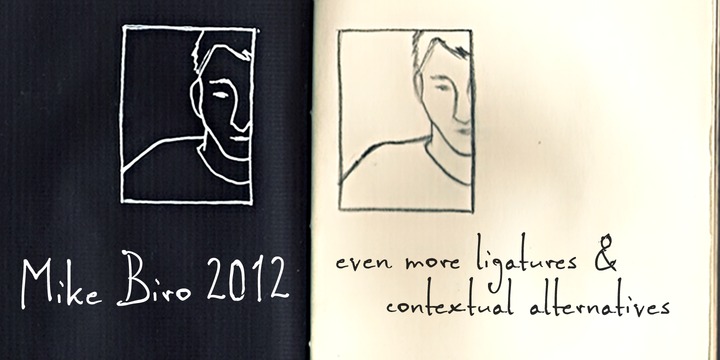 Mike Biro 2012
even more ligatures &
contextual alternatives